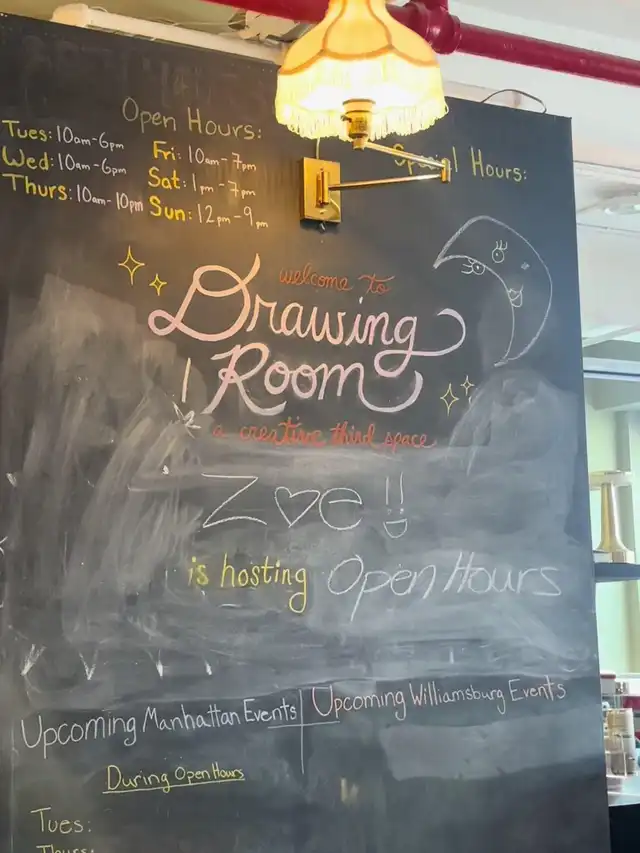 Open Hours:
Tues: 10am-6pm
Wed: 10am-6pm
Thurs: 10am-10pm
Fri: 10am-7pm
Sat: 1pm-7pm
Sun: 12pm-9pm
Hours:
welcome to
Drawing
Room
a creative third space
Z♡e!!
is hosting Open Hours
Upcoming Manhattan Events
During Open Hours
Tues:
Thurs:
Upcoming Williamsburg Events